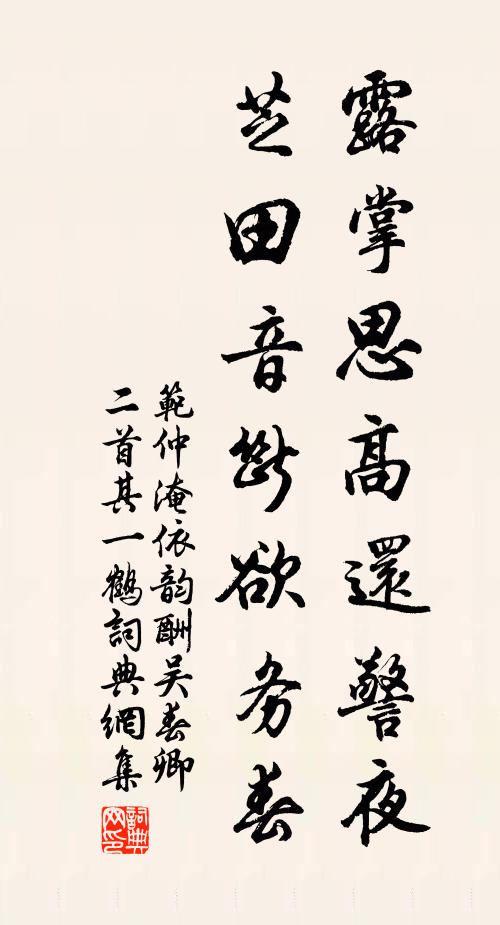 露掌思高還警夜
芝田音斷欲务春
範仲淹依韵酬吴春卿
二首其一鶴詞典網集
詞典网印